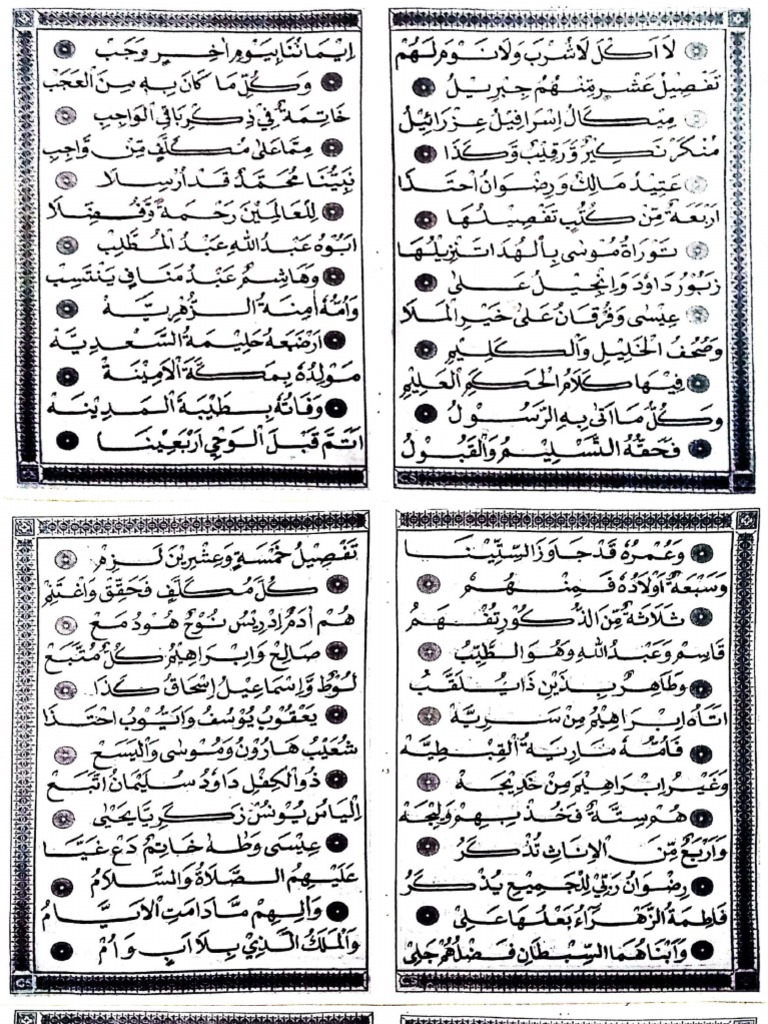 لَا اَكْلَ لَا شُرْبَ وَلَا نَوْمَ لَهُمْ
تَفْصِيْلُ عَشْرٍ مِنْهُمُ جِبْرِيْلُ
مِيْكَالُ اِسْرَافِيْلُ عِزْرَائِيْلُ
مُنْكَرْ نَكِيْرٌ وَّرَقِيْبٌ وَّكَذَا
عَتِيْدُ مَالِكْ وَرِضْوَانُ احْتَذَا
اَرْبَعَةٌ مِّنْ كُتُبٍ تَفْصِيْلُهَا
تَوْرَاةُ مُوْسٰى بِالْهُدَا تَنْزِيْلُهَا
زَبُوْرُ دَاوُدَ وَاِنْجِيْلُ عَلٰى
عِيْسٰى وَفُرْقَانُ عَلٰى خَيْرِ الْمَلَا
وَصُحُفُ الْخَلِيْلِ وَالْكَلِيْمِ
فِيْهَا كَلَامُ الْحَكَمِ الْعَلِيْمِ
وَكُلُّ مَا اَتٰى بِهِ الرَّسُوْلُ
فَحَقُّهُ التَّسْلِيْمُ وَالْقَبُوْلُ
اِيْمَانُنَا بِيَوْمِ اٰخِرٍ وَجَبْ
وَكُلِّ مَا كَانَ بِهِ مِنَ الْعَجَبْ
خَاتِمَةٌ فِيْ ذِكْرِ بَاقِى الْوَاجِبِ
مِمَّا عَلٰى مُكَلَّفٍ مِّنْ وَّاجِبِ
نَبِيُّنَا مُحَمَّدٌ قَدْ اُرْسِلَا
لِلْعَالَمِيْنَ رَحْمَةً وَّفُضِّلَا
اَبُوْهُ عَبْدُ اللهِ عَبْدُ الْمُطَّلِبْ
وَهَاشِمٌ عَبْدُ مَنَافٍ يَنْتَسِبْ
وَاُمُّهُ اٰمِنَةُ الزُّهْرِيَّةْ
اَرْضَعَهُ حَلِيْمَةُ السَّعْدِيَّةْ
مَوْلِدُهُ بِمَكَّةَ الْاَمِيْنَةْ
وَفَاتُهُ بِطَيْبَةَ الْمَدِيْنَةْ
اَتَمَّ قَبْلَ الْوَحْيِ اَرْبَعِيْنَا
وَعُمْرُهُ قَدْ جَاوَزَ السِّتِّيْنَا
وَسَبْعَةٌ اَوْلَادُهُ فَمِنْهُمْ
ثَلَاثَةٌ مِّنَ الذُّكُوْرِ تُفْهَمُ
قَاسِمْ وَعَبْدُ اللهِ وَهُوَ الطَّيِّبُ
وَطَاهِرٌ بِذَيْنِ ذَا يُلَقَّبُ
اَتَاهُ اِبْرَاهِيْمُ مِنْ سَرِيَّةْ
فَاُمُّهُ مَارِيَةُ الْقِبْطِيَّةْ
وَغَيْرُ اِبْرَاهِيْمَ مِنْ خَدِيْجَةْ
هُمْ سِتَّةٌ فَخُذْ بِهِمْ وَلِيْجَةْ
وَاَرْبَعٌ مِّنَ الْاِنَاثِ تُذْكَرُ
رِضْوَانُ رَبِّيْ لِلْجَمِيْعِ يُذْكَرُ
فَاطِمَةُ الزَّهْرَاءُ بَعْلُهَا عَلِى
وَابْنَاهُمَا السِّبْطَانِ فَضْلُهُمْ جَلِى
تَفْصِيْلُ خَمْسَةٍ وَعِشْرِيْنَ لَزِمْ
كُلَّ مُكَلَّفٍ فَحَقِّقْ وَاغْتَنِمْ
هُمْ اٰدَمُ اِدْرِيْسُ نُوْحٌ هُوْدُ مَعْ
صَالِحْ وَاِبْرَاهِيْمُ كُلٌّ مُتَّبَعْ
لُوْطٌ وَّاِسْمَاعِيْلُ اِسْحَاقُ كَذَا
يَعْقُوْبُ يُوْسُفُ وَاَيُّوْبُ احْتَذَا
شُعَيْبُ هَارُوْنُ وَمُوْسٰى وَالْيَسَعْ
ذُو الْكِفْلِ دَاوُدُ سُلَيْمَانُ اتَّبَعْ
اِلْيَاسُ يُوْنُسْ زَكَرِيَّا يَحْيٰى
عِيْسٰى وَطٰهٰ خَاتِمٌ دَعْ غَيَّا
عَلَيْهِمُ الصَّلَاةُ وَالسَّلَامُ
وَاٰلِهِمْ مَّا دَامَتِ الْاَيَّامُ
وَالْمَلَكُ الَّذِيْ بِلَا اَبٍ وَّاُمْ